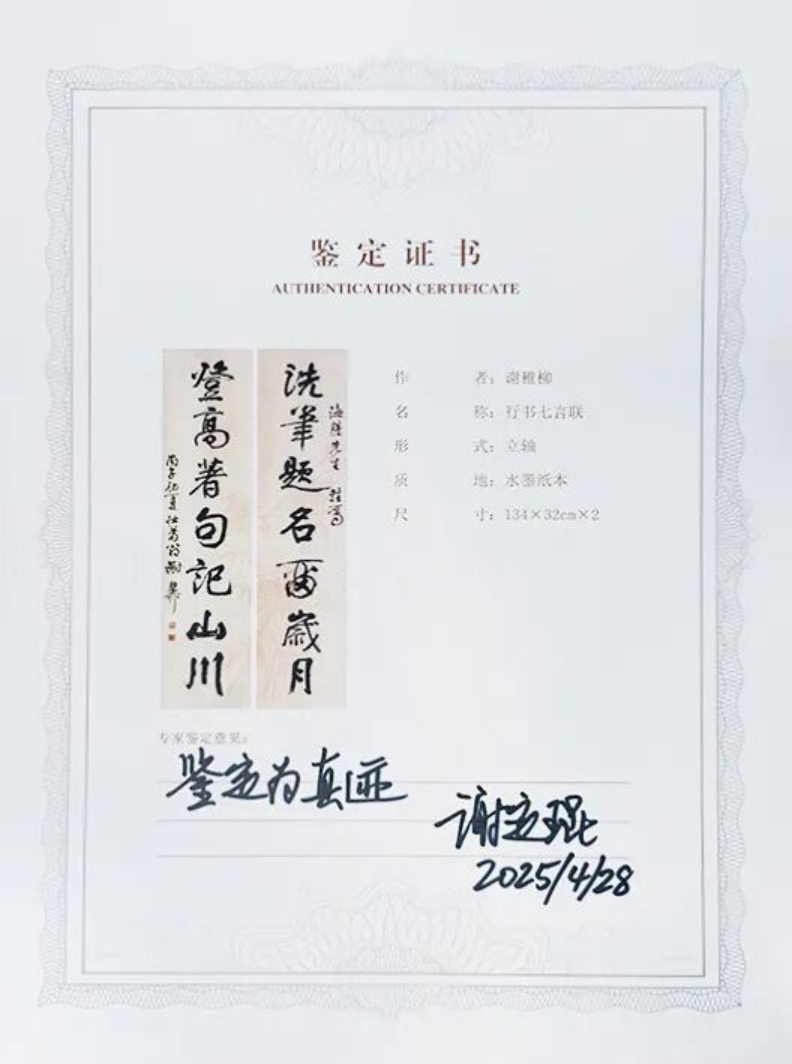 鉴定证书
AUTHENTICATION CERTIFICATE
洗筆题名留歲月
登高著句記山川
丙子初夏壮暮翁謝稚
作者：谢稚柳
名称：行书七言联
形式：立轴
质地：水墨纸本
尺寸：134×32cm×2
专家鉴定意见：
鉴定为真迹
谢定琨
2025/4/28